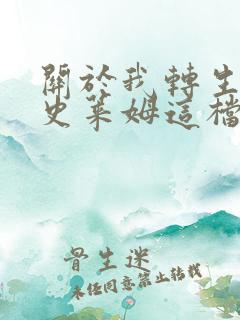 關於我轉生
史萊姆這檔
骨生迷
未經同意禁止轉載